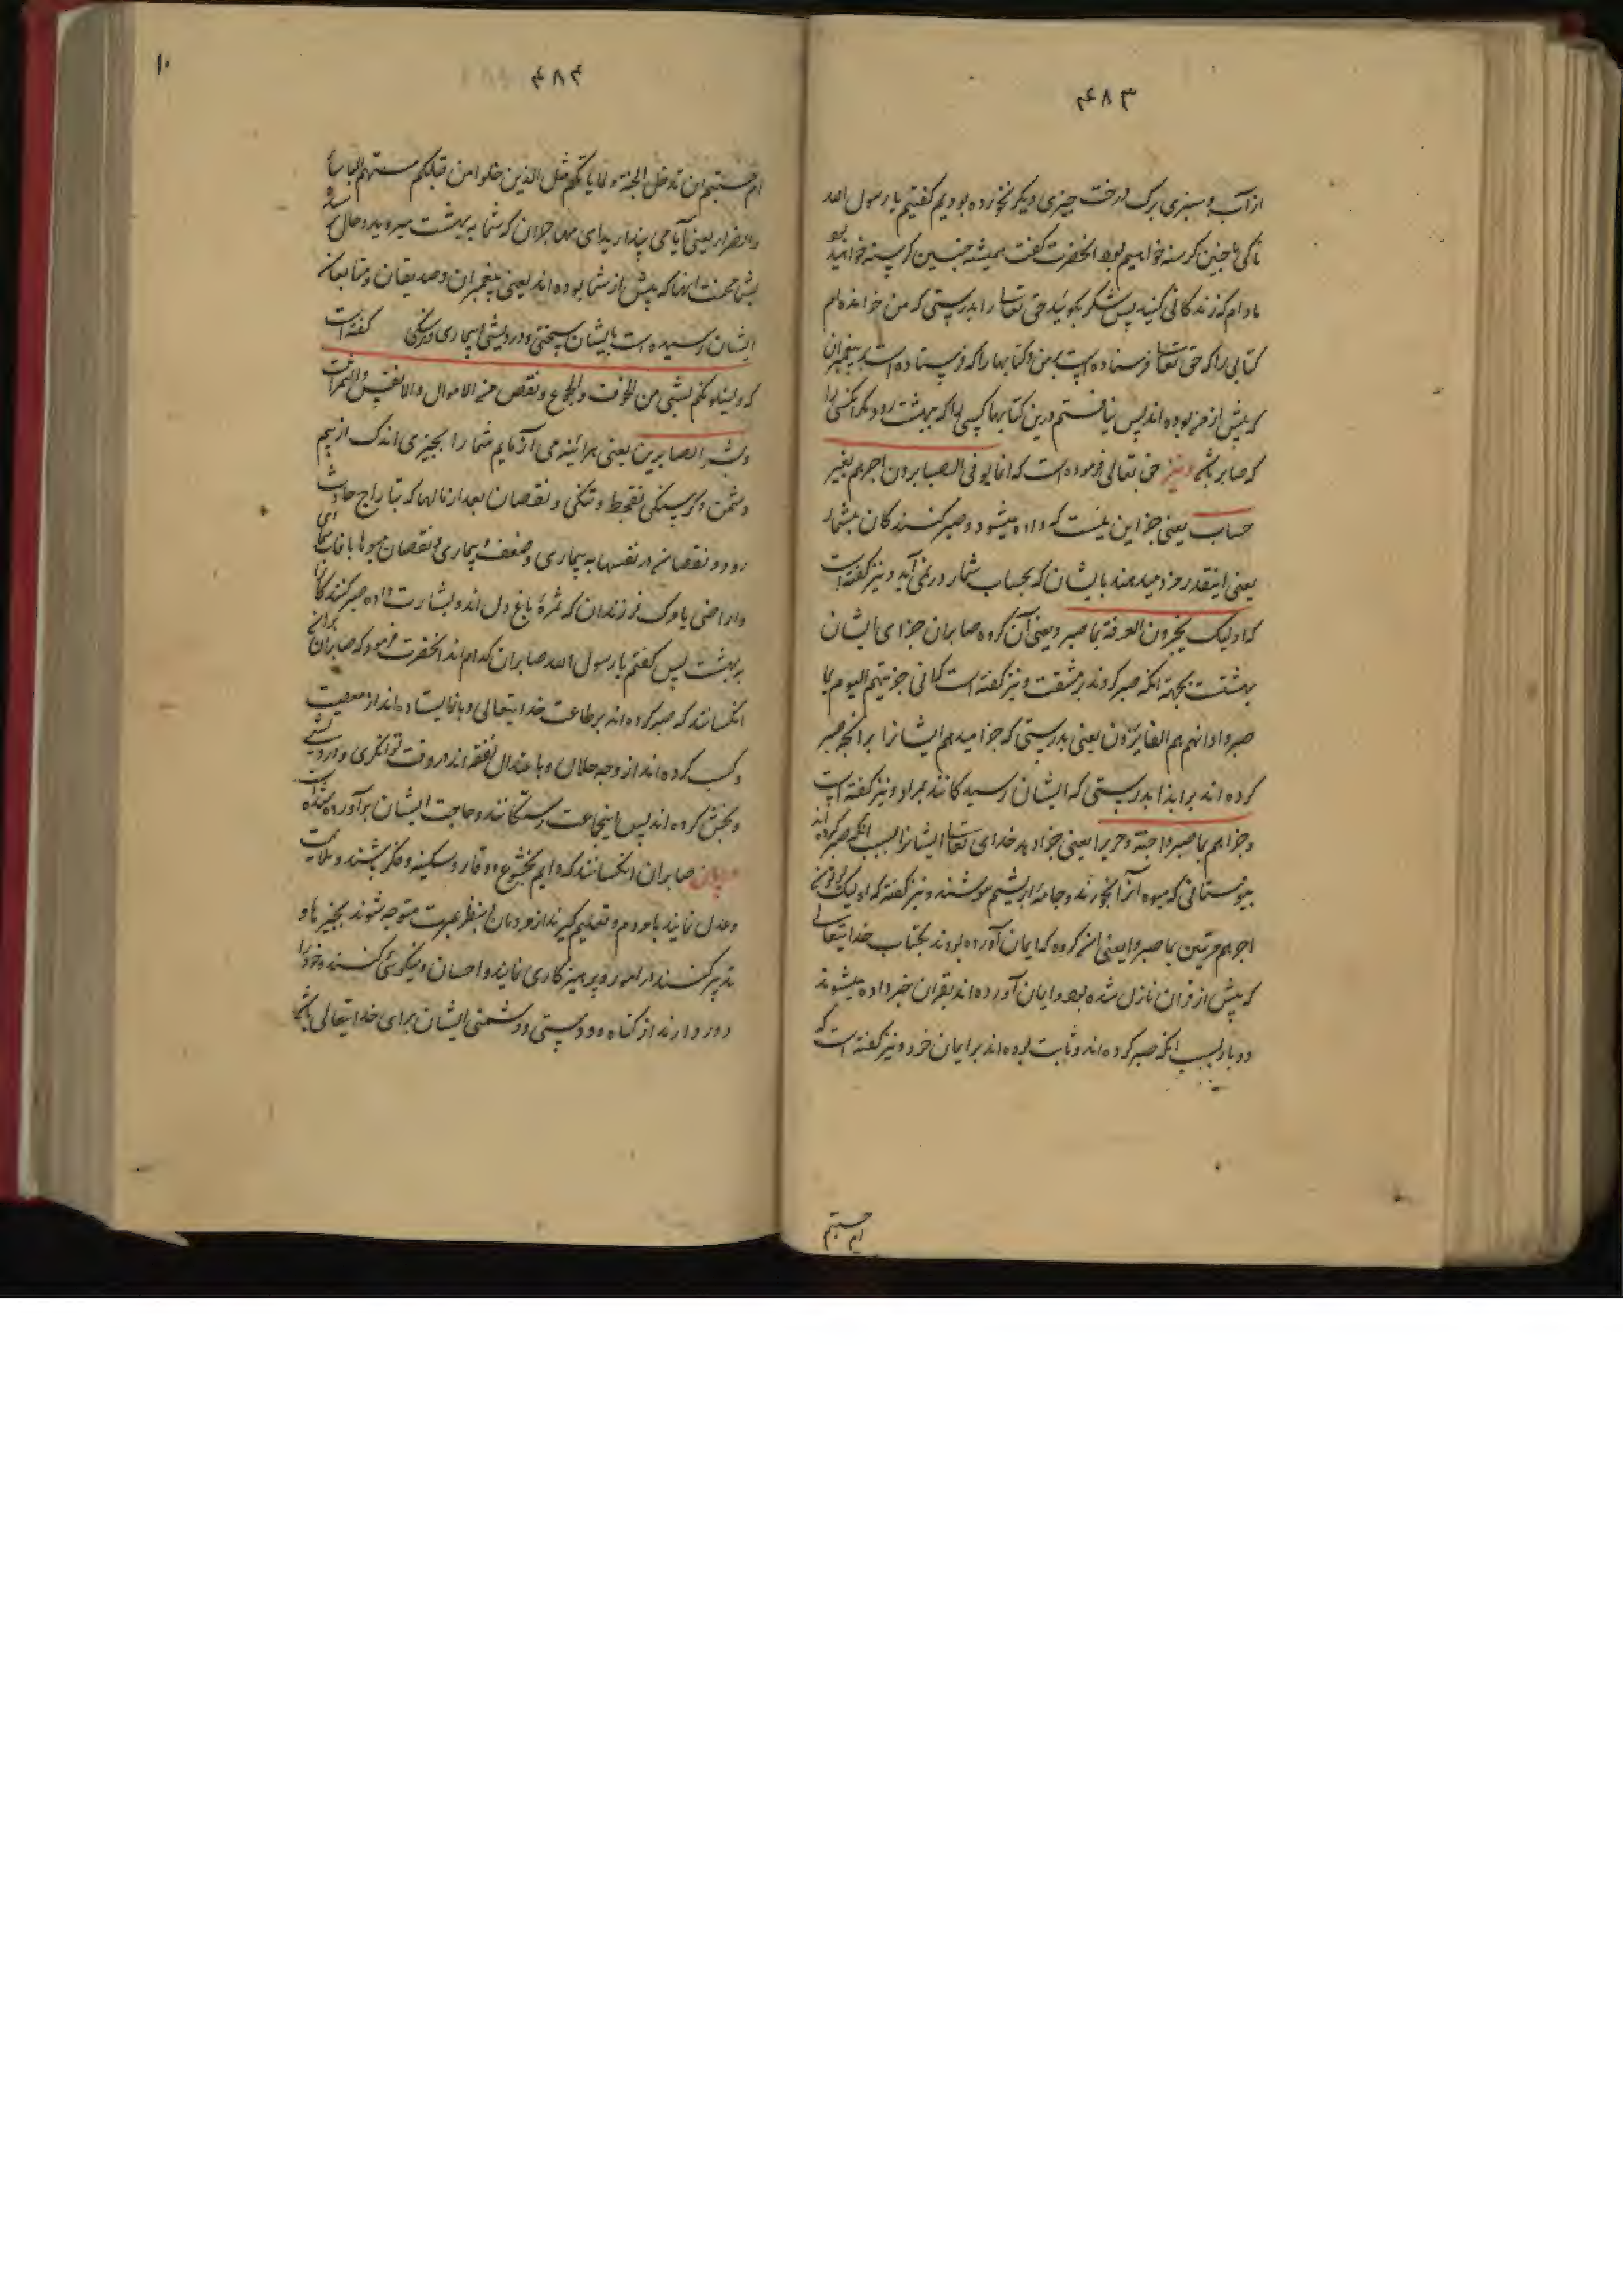 ۴۸۳
از آب و سبزی برک درخت چیزی دیگر نخورده بودیم کفتیم یا رسول الله
تا کی ما چنین کرسنه خواهیم بود انحضرت کفت همیشه چنین کرسنه خواهید بود
مادام که زندکانی کنید پس شکر بکوئید حق تعالی را بدرستی که من خوانده ام
کتابی را که حق تعالی فرستاده است بمن و کتابها را که فرستاده است به پیغمبران
که پیش از من بوده اند پس نیافتم درین کتابها کسی را که ببهشت رود مکر انکسی را
که صابر باشد و نیز حق تعالی فرموده است که انما یوفی الصابرون اجرهم بغیر
حساب یعنی جز این نیست که داده میشود صبر کنندکان بیشمار
یعنی اینقدر مزد میدهند بایشان که بحساب شمار در نمی آید و نیز کفته است
که اولیک یجزون الغرفة بما صبروا یعنی آن کروه صابران جزای ایشان
بهشتت بجهة انکه صبر کردند بر مشقت و نیز کفته است که انی جزیتهم الیوم بما
صبروا انهم هم الفایزون یعنی بدرستی که جزا میدهم ایشانرا بر انچه صبر
کرده اند بر ایذا بدرستی که ایشان رسیدکانند بمراد و نیز کفته است
وجزاهم بما صبروا جنة وحریرا یعنی جزا دهد خدای تعالی ایشانرا بسبب انکه صبر کرده اند
ببوستانی که میوه آنرا بخورند و جامه ابریشم پوشند و نیز کفته که اولیک یوتون
اجرهم مرتین بما صبروا یعنی ان کروه که ایمان آورده بودند بکتاب خدایتعالی
که پیش از قران نازل شده بود و ایمان آورده اند بقران خبر داده میشوند
دو بار بسبب انکه صبر کرده اند و ثابت بوده اند بر ایمان خود و نیز کفته است که
ام حسبتم
۴۸۴
۱۰
ام حسبتم ان تدخلوا الجنة ولما یاتکم مثل الذین خلوا من قبلکم مستهم الباسا
والضرا یعنی آیا می پندارید ای مهاجران که شما به بهشت میروید و حال
بشما محنت انها که پیش از شما بوده اند یعنی پیغمبران و صدیقان و متابعان
ایشان رسیده است بایشان سختی و درویشی و بیماری کفته است
که ولنبلونکم بشی من الخوف والجوع ونقص من الاموال والانفس والثمرات
وبشر الصابرین یعنی هرآئینه می آزمایم شما را بچیزی اندک از بیم
دشمن و کرسنکی بقحط و تنکی و نقصان بعد از مالها که بتاراج حادث
رود و نقصان در نفسها به بیماری و ضعف و بیماری و نقصان میوها بافات
و اراضی یا مرک فرزندان که ثمرهٔ باغ دل اند و بشارت داده صبر کنندکان را
به بهشت پس کفتم یا رسول الله صابران کدام اند انحضرت فرمود که صابران
انکسانند که صبر کرده اند بر طاعت خدایتعالی و باز ایستاده اند از معصیت
و کسب کرده اند از وجه حلال و باعتدال نفقه اند در وقت توانکری و درویشی
و بخشش کرده اند پس اینجماعت رستکانند و حاجت ایشان برآورده شده است
صابران انکسانند که دایم بخشوع و وقار و سکینه و فکر باشند
و عدل نمایند با مردم و تعلیم کیرند از مردمان بنظر عبرت متوجه شوند بچیزها و
تدبیر کنند در امور و پرهیزکاری نمایند و احسان و نیکوئی کنند و خود را
دور دارند از کناه و دوستی و دشمنی ایشان برای خدایتعالی باشد